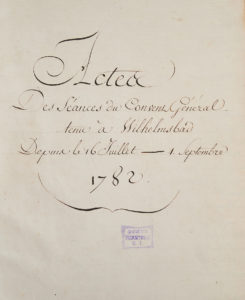 Actes
Des Séances du Convent Général
tenu à Wilhelmsbad
Depuis le 16 Juillet — 1 Septembre
1782.